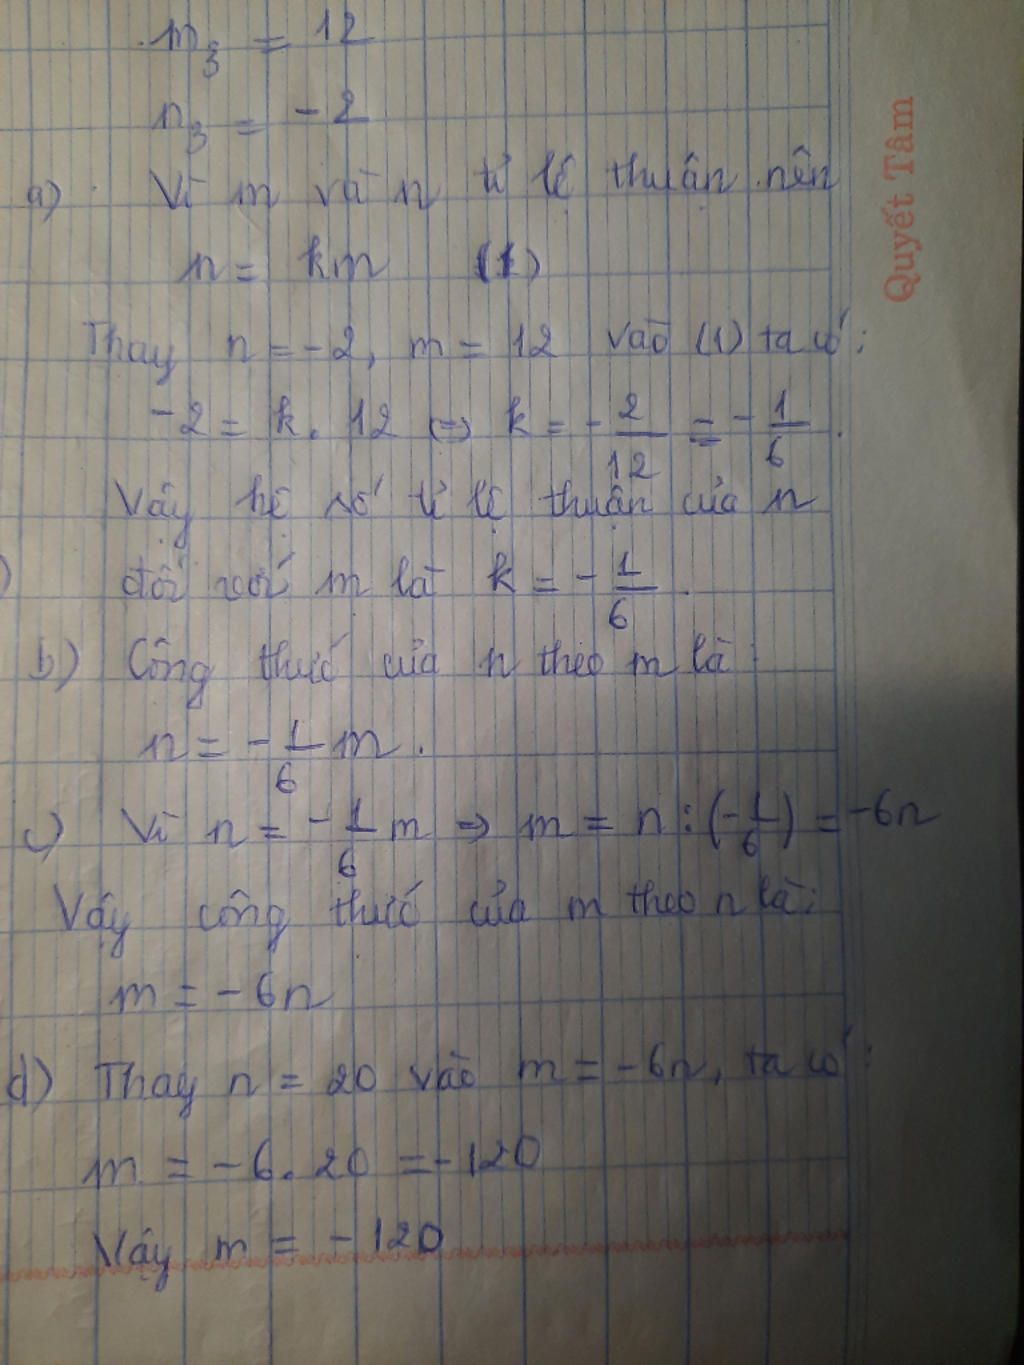 m₃ = 12
n₃ = -2
a) Vì m và n tỉ lệ thuận nên
n = km (1)
Thay n = -2, m = 12 vào (1) ta có:
-2 = k. 12 ⇔ k = -2/12 = -1/6.
Vậy hệ số tỉ lệ thuận của n
đối với m là k = -1/6.
b) Công thức của n theo m là:
n = -1/6 m.
c) Vì n = -1/6 m ⇒ m = n : (-1/6) = -6n
Vậy công thức của m theo n là:
m = -6n
d) Thay n = 20 vào m = -6n, ta có:
m = -6. 20 = -120
Vậy m = -120
Quyết Tâm